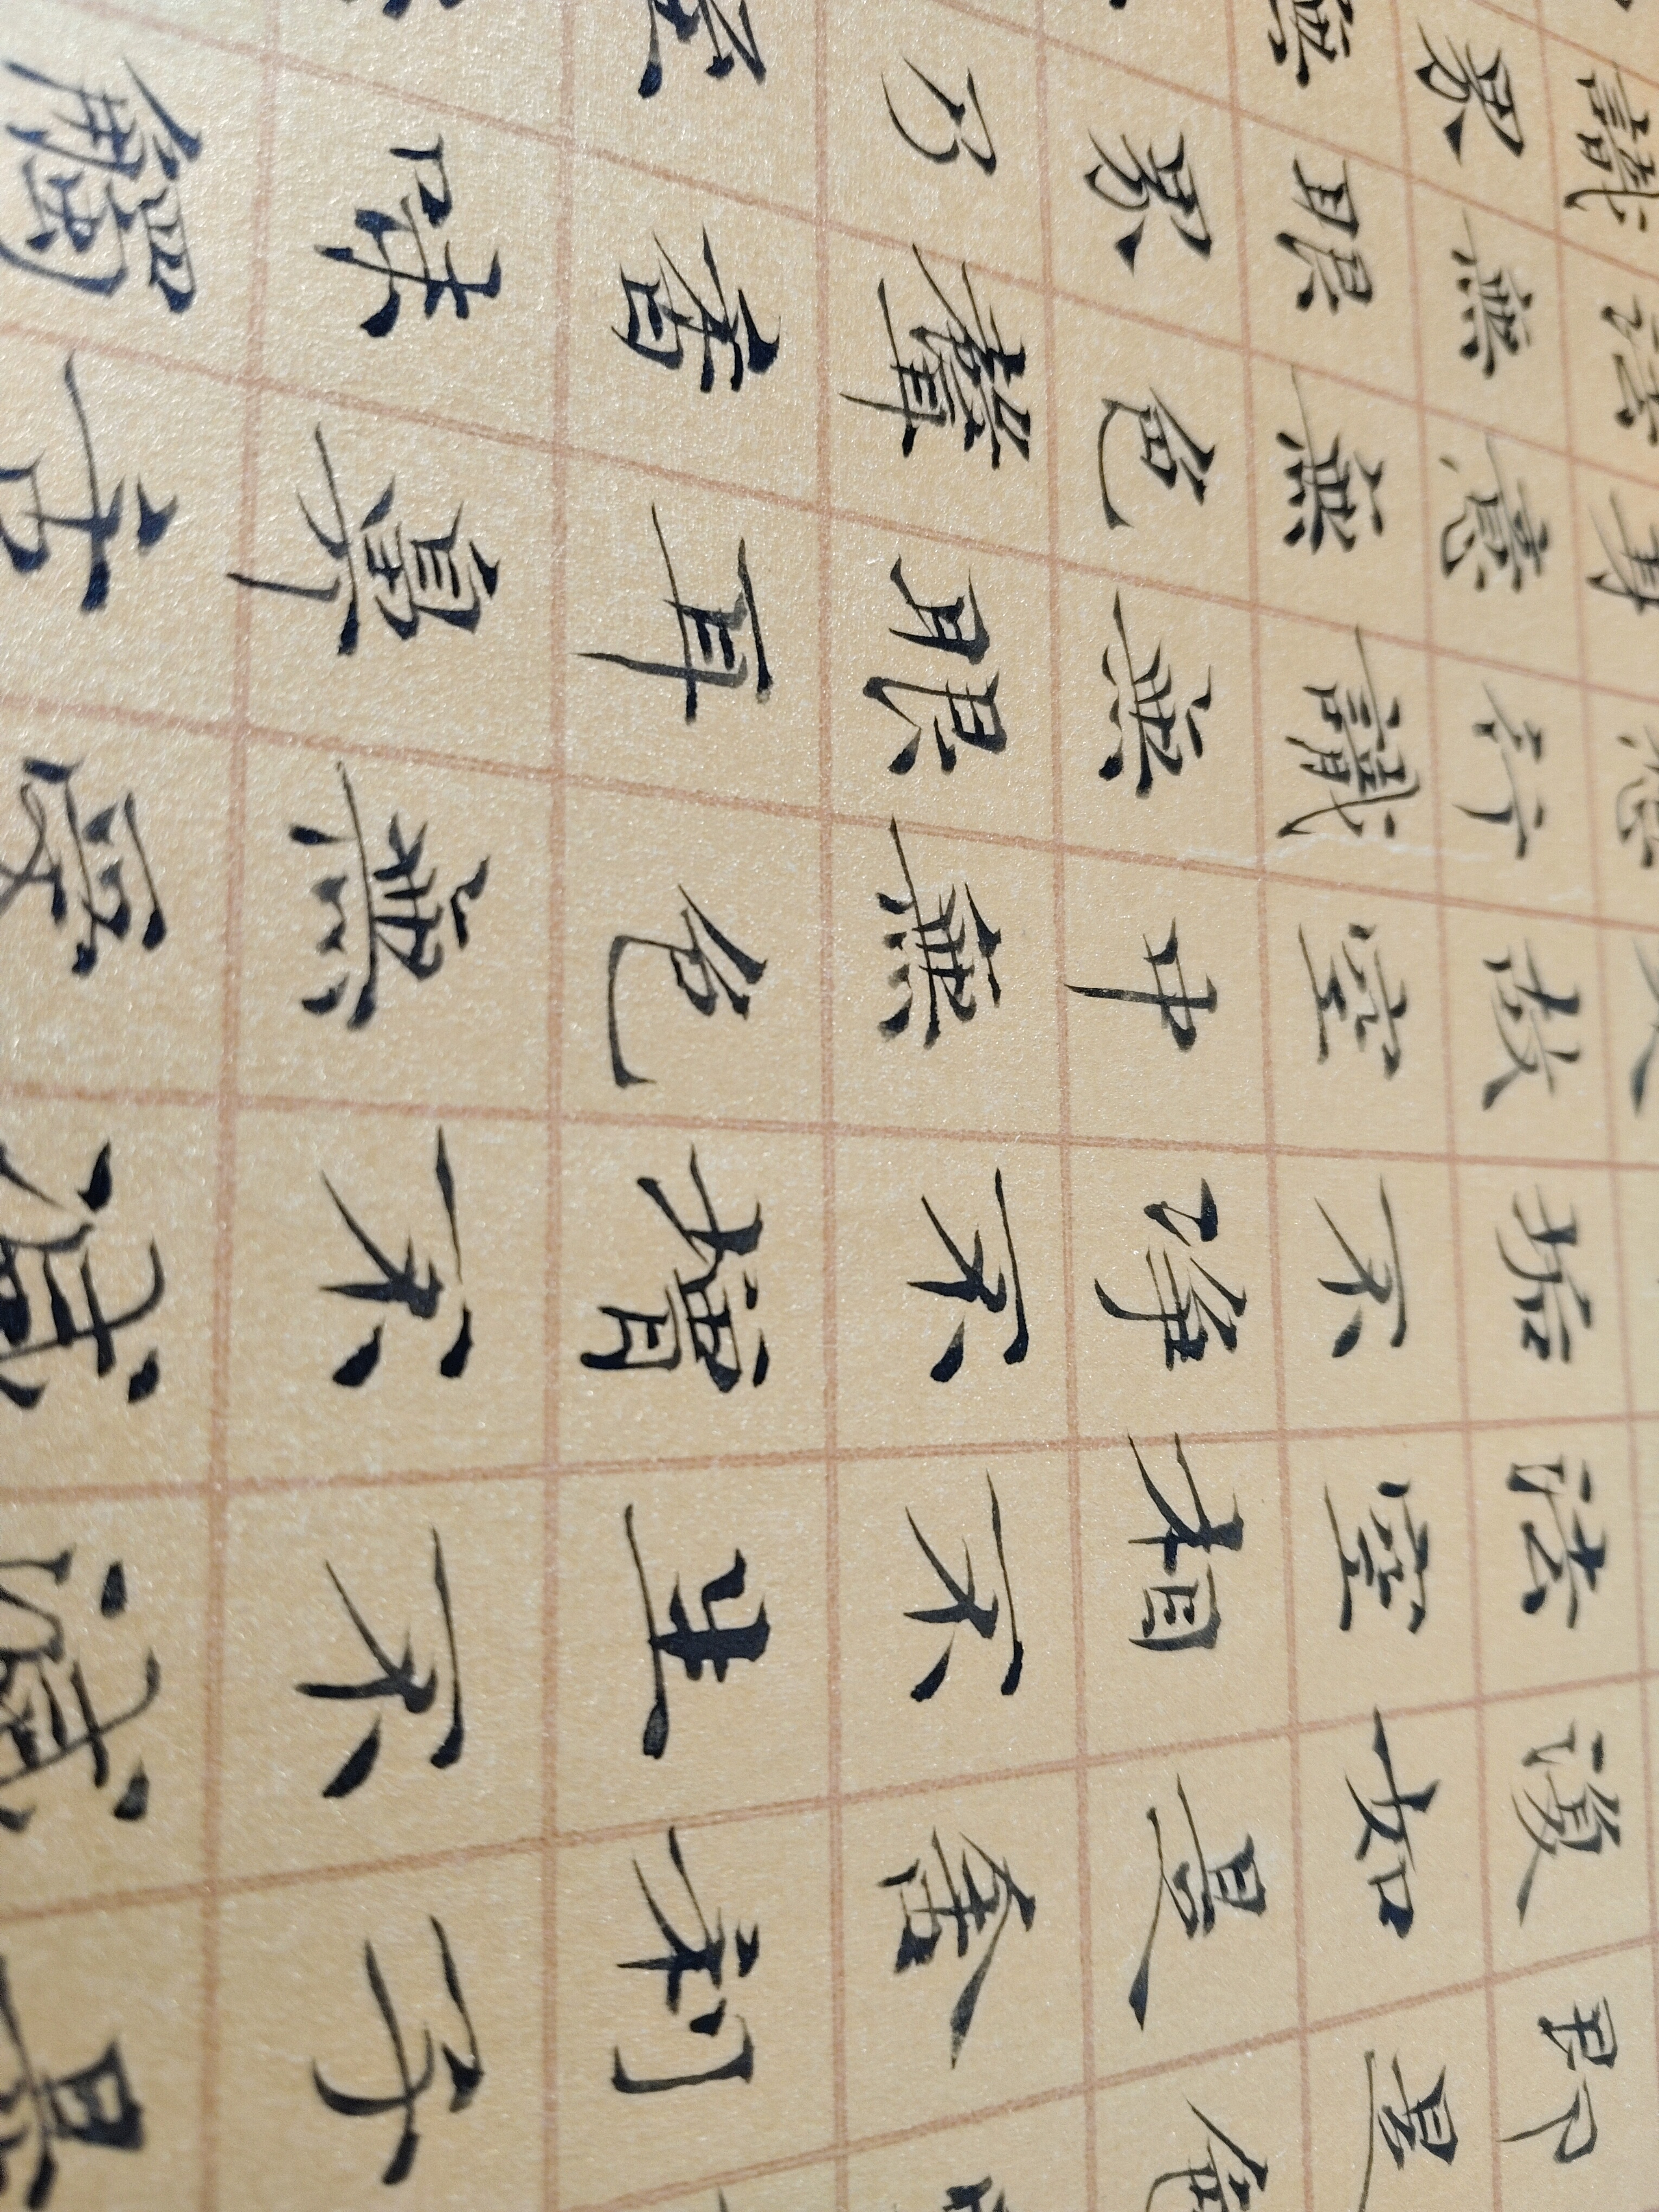 即是色
復如是舍利子是
法空相不生不滅
垢不淨不增不減
故空中無色無受
想行識無眼耳鼻舌
身意無色聲香味觸
法無眼界乃至
識界無